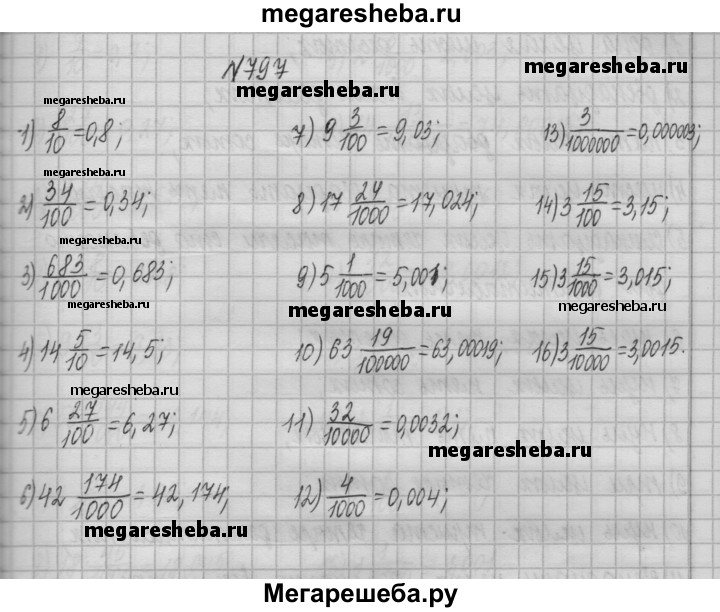 megaresheba.ru
№797
megaresheba.ru
megaresheba.ru
megaresheba.ru
1) 8/10 = 0,8;
7) 9 3/100 = 9,03;
13) 3/1000000 = 0,000003;
megaresheba.ru
megaresheba.ru
megaresheba.ru
2) 34/100 = 0,34;
8) 17 24/1000 = 17,024;
14) 3 15/100 = 3,15;
megaresheba.ru
3) 683/1000 = 0,683;
9) 5 1/1000 = 5,001;
15) 3 15/1000 = 3,015;
megaresheba.ru
megaresheba.ru
megaresheba.ru
4) 14 5/10 = 14,5;
10) 63 19/100000 = 63,00019;
16) 3 15/10000 = 3,0015.
megaresheba.ru
5) 6 27/100 = 6,27;
11) 32/10000 = 0,0032;
megaresheba.ru
6) 42 174/1000 = 42,174;
12) 4/1000 = 0,004;
megaresheba.ru
Мегарешеба.ру